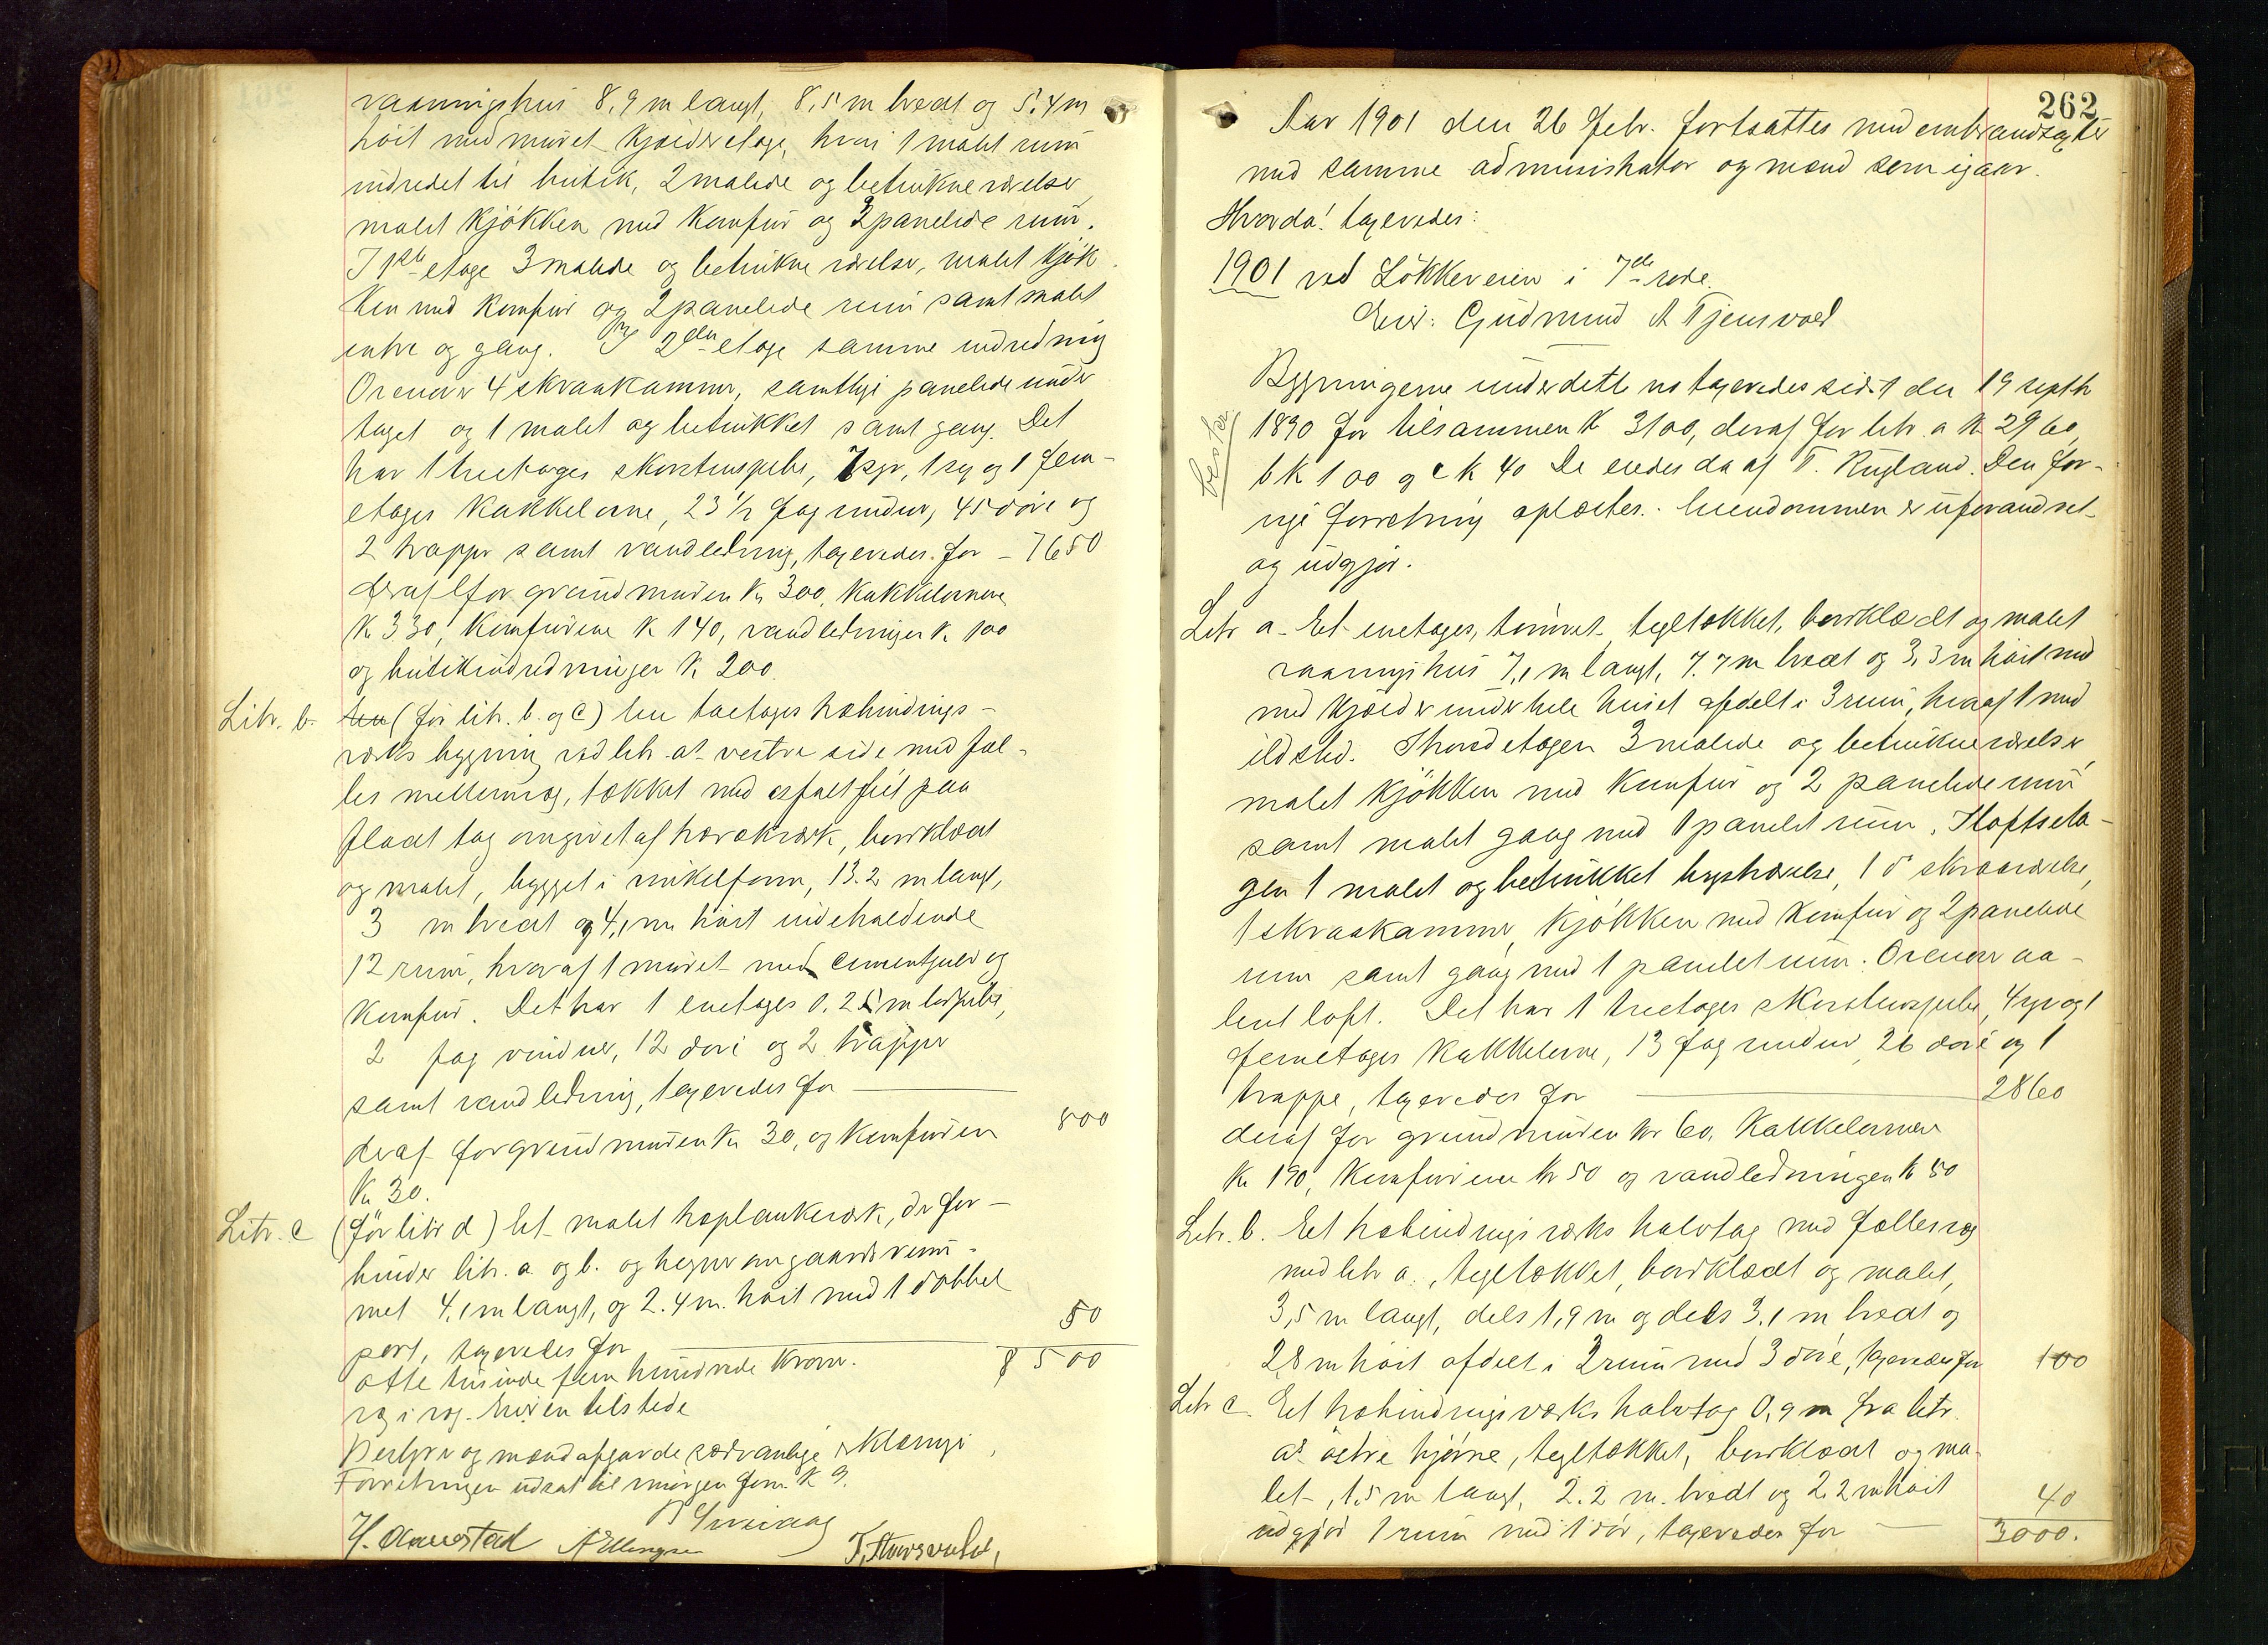 vaaningshus 8,9 m langt, 8,5 m bredt og 5,4 m
höit med muret kjælderetage, hvori 1 malet rum
indredet til butik, 2 malede og betrukne værelser,
malet kjökken med komfur og 2 panelede rum.
I 1ste etage 3 malede og betrukne værelser, malet kjök
ken med komfur og 2 panelede rum samt malet
entre og gang. I 2den etage samme indredning
Ovenover 4 skraakammer, samtlige panelede under
taget og 1 malet og betrukket samt gang. Det
har 1 treetages skorstenspibe, 7 gr, 1 sy og 1 fem-
etages kakkelovne, 23 1/2 fag vinduer, 45 döre og
2 trapper samt vandledning, taxeredes for - 7650
deraf for grundmuren Kr 300, kakkelovnene
Kr 330, komfurene K 140, vandledningen K 100
og butikindredningen K 200.
Litr. b. (för litr. b. og c) En toetages htbindings-
værks bygning ved litr. a's vestre side med fæl-
les mellemvæg, tækket med asfaltfilt paa
fladt tag omgivet af trærækværk, bordklædt
og malet, bygget i vinkelform, 13.2 m langt,
3 m bredt og 4,1 m höit indeholdende
12 rum, hvoraf 1 muret med cementgulv og
komfur. Det har 1 enetages 0.25 m pibe,
2 fag vinduer, 12 döre og 2 trapper
samt vandledning, taxeredes for
800
deraf for grundmuren Kr 30, og komfuren
Kr 30.
Litr. c (för litr d) Et malet træplankeværk, der for-
binder litr. a og b. og hegner om gaardsrum-
met 4,1 m langt, og 2.4 m. höit med 1 dobbel
port, taxeredes for
50
otte tusinde fem hundrede kroner.
8500
væg i væg. Eieren tilstede
Bestyrer og mænd afgav de sædvanlige erklæringer
Forretningen udsat til imorgen form. K 9.
T. Stangeland,
262
Aar 1901 den 26 febr. fortsattes med ombrandstaxter
med samme administrator og mænd som igaar.
Hvorda! taxeredes:
1901 ved Lökkeveien i 7de rode.
Eier: Gudmund A Tjensvold
Bygningerne under dette no taxeredes sidst den 19 septbr
1890 for tilsammen K 3100, deraf for litr. a K 2960,
b K 100 og c K 40 De eiedes da af T. Rugland. Den for-
rige forretning oplæstes. Eiendommen er uforandret
og udgjör.
Litr a. Et enetages, tömret tegltækket, bordklædt og malet
vaaningshus 7,1 m langt, 7.7 m bredt og 3,3 m höit med
med kjælder under hele huset afdelt i 3 rum, hvoraf 1 med
ildsted. I hovedetagen 3 malede og betrukne værelser,
malet kjökken med komfur og 2 panelede rum
samt malet gang med 1 panelet rum. I loftseta-
gen 1 malet og betrukket kvistværelse, 1 do skraaværelse,
1 skraakammer, kjökken med komfur og 2 panelede
rum samt gang med 1 panelet rum. Ovenover aa-
bent loft. Det har 1 treetages skorstenspibe, 4 gr og 1
femetages kakkelovne, 13 fag vinduer, 26 döre og 1
trappe, taxeredes for 2860
deraf for grundmuren Kr 60, kakkelovnene
Kr 190, komfurene Kr 50 og vandledningen K 50
Litr. b. Et træbindingsværks halvtag med fællesvæg
med litr a., tegltækket, bordklædt og malet,
3,5 m langt, dels 1,9 m og dels 3,1 m bredt og
2,8 m höit afdelt i 2 rum med 3 döre, taxeredes for 100
Litr c. Et træbindingsværks halvtag 0,9 m fra litr.
a's östre hjörne, tegltækket, bordklædt og ma-
let, 1,5 m langt, 2.2 m. bredt og 2,2 m höit
40
udgjör 1 rum med 1 dör, taxeredes for
3000.